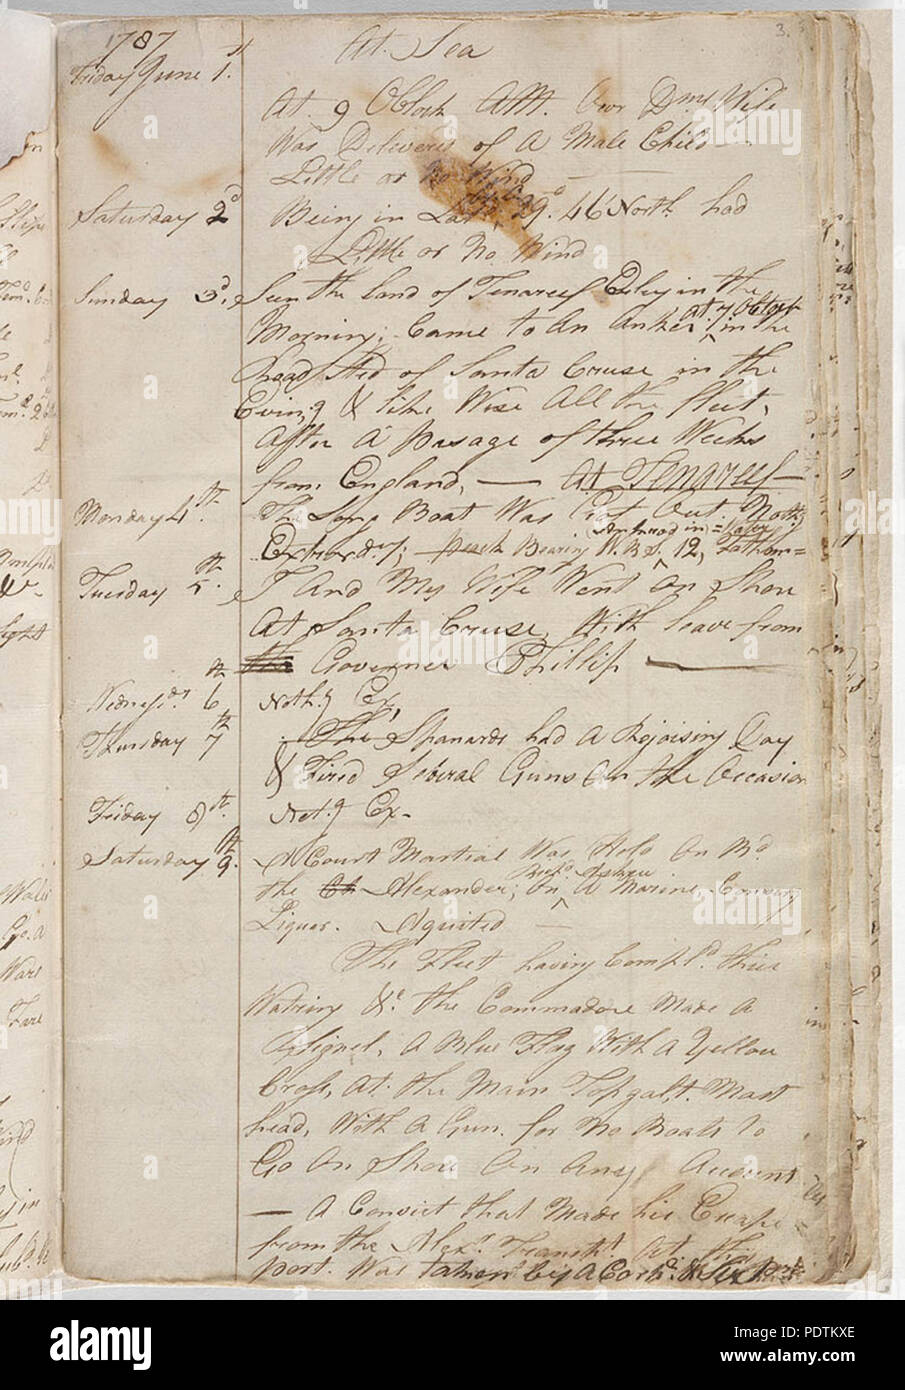 1787 At Sea 3.
Friday June 1st.
At 9 Oblock AM. Our Drms Wife
Was Delivered of A Male Child —
Little or No Wind
Saturday 2d Being in Latt. 29°. 46 North had
Little or No Wind
Sunday 3d, Seen the Land of Tenareef Erley in the
Morning; Came to An Anker at 7 Oblock in the
Road Sted of Santa Cruse in the
Eving & like Wise All the fleet,
After A pasage of three Weeks
from England, — At Tenareef —
Monday 4th. The Long Boat Was Got Out. Noth.g
Exterordy; Bearing 12, Fathom =
Tuesday 5th, I and My Wife Went on Shore
At Santa Cruse, With leave from
Governer Phillip —
Wednesd.y 6th Noth.g Ex,
Thursday 7th The Spanards had A Rejoising Day
& Fired Several Guns On the Occasion
Friday 8th. Not.g Ex-
Saturday 9th. A Court Martial Was Held On Bd.
the Alexander; On A Marine
Liquor. Aquited —
The Fleet having Compl.d thier
Watring &c. the Commadore Made A
Signel, A Blue Flag With A Yellow
Cross, At. the Main Topgalt. Mast
head, With A Gun. for No Boats to
Go On Shore On Any Account
— A Convict that Made his Escape
from the Alexr. Transpt. At. this
port. Was taken by A Corpl. &
alamy stock photo
Image ID: PDTKXE
www.alamy.com